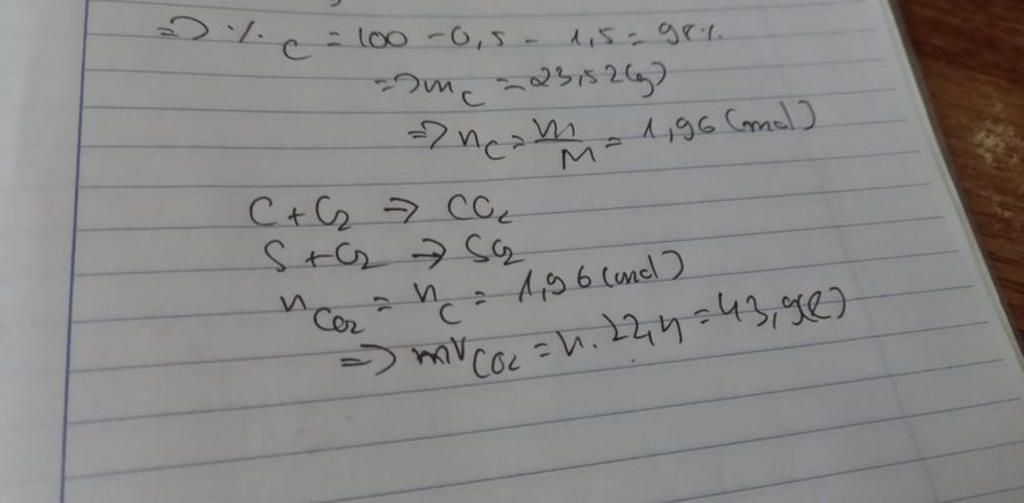 => .%. C = 100 - 0,5 - 1,5 = 98%.
=> m C = 23,52(g)
=> n C = m/M = 1,96 (mol)
C + O2 => CO2
S + O2 -> SO2
n CO2 = n C = 1,96 (mol)
=> mV CO2 = n. 22,4 = 43,9(l)